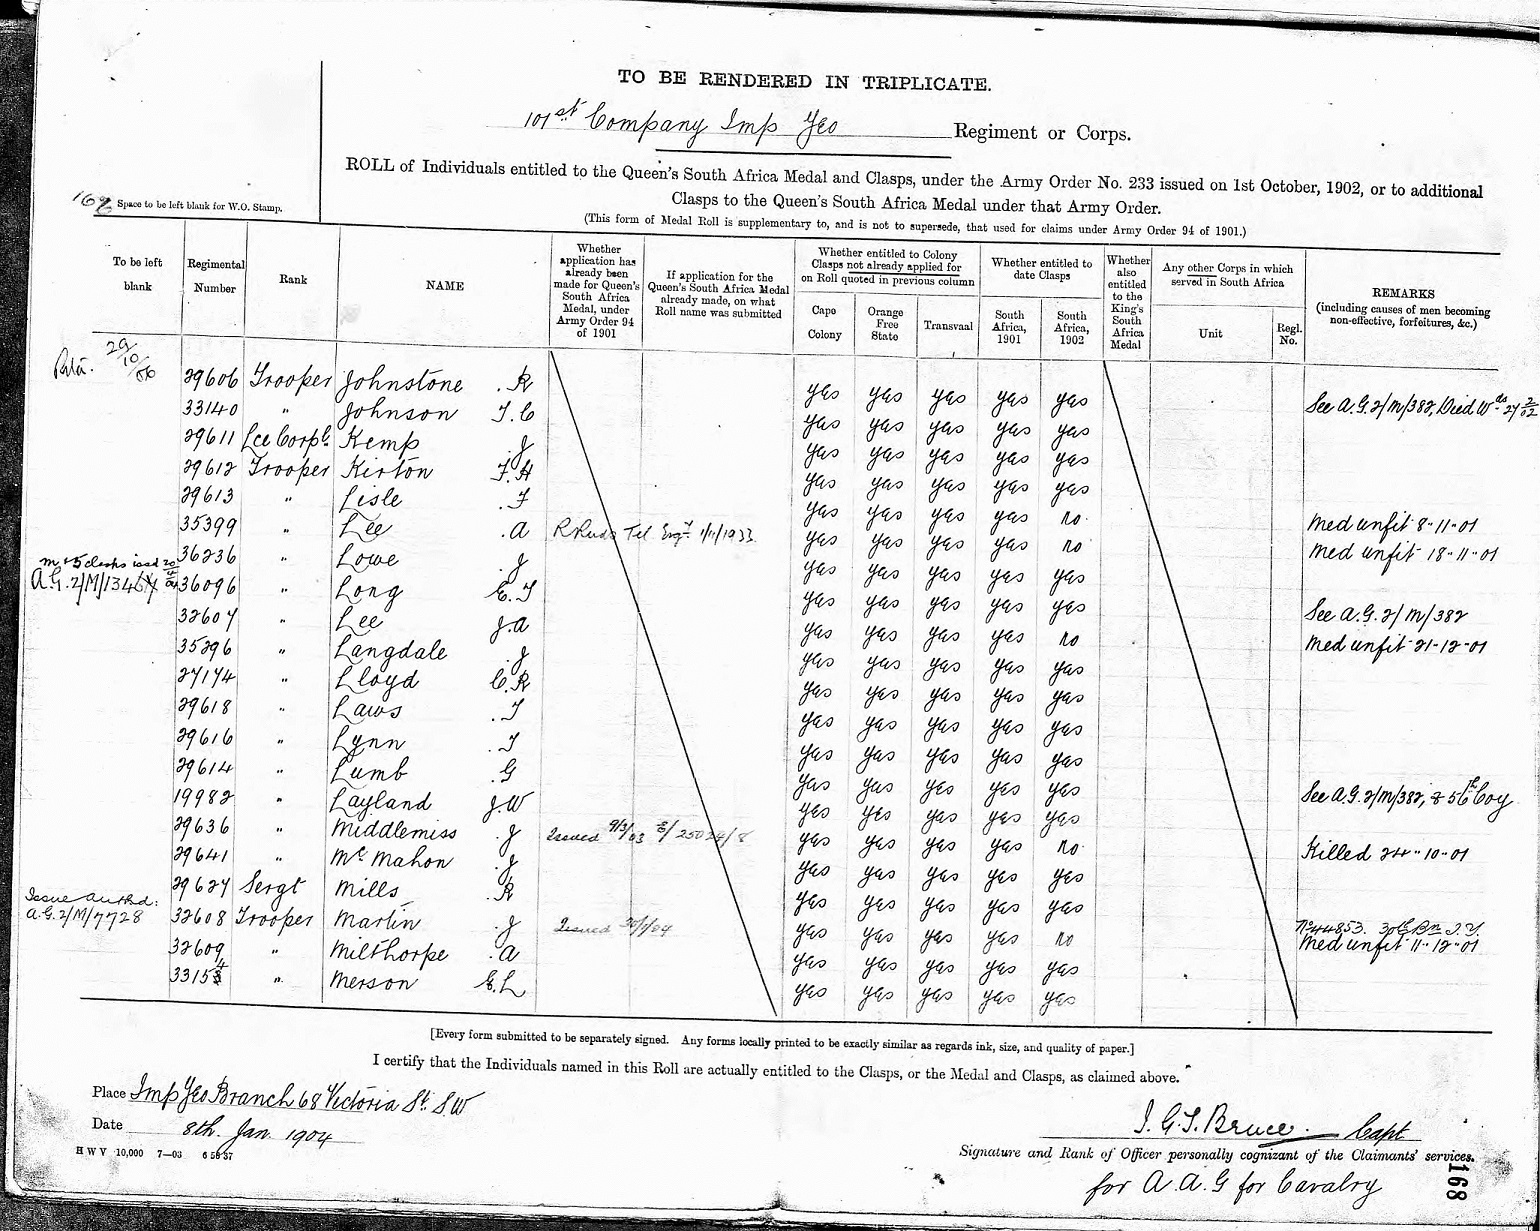 TO BE RENDERED IN TRIPLICATE.
101st Company Imp Yeo Regiment or Corps.
ROLL of Individuals entitled to the Queen's South Africa Medal and Clasps, under the Army Order No. 233 issued on 1st October, 1902, or to additional
Clasps to the Queen's South Africa Medal under that Army Order.
(This form of Medal Roll is supplementary to, and is not to supersede, that used for claims under Army Order 94 of 1901.)
Space to be left blank for W.O. Stamp.
To be left blank
Regimental Number
Rank
NAME
Whether application has already been made for Queen's South Africa Medal, under Army Order 94 of 1901
If application for the Queen's South Africa Medal already made, on what Roll name was submitted
Whether entitled to Colony Clasps not already applied for on Roll quoted in previous column
Cape Colony
Orange Free State
Transvaal
Whether entitled to date Clasps
South Africa, 1901
South Africa, 1902
Whether also entitled to the King's South Africa Medal
Any other Corps in which served in South Africa
Unit
Regl. No.
REMARKS
(including causes of men becoming non-effective, forfeitures, &c.)
29606 Trooper Johnstone . R yes yes yes yes yes
33140 " Johnson T. C yes yes yes yes yes See A.G. 2/M/382, Died Wds 27/2/02
29611 Lce Corpl. Kemp . J yes yes yes yes yes
29612 Trooper Kirton F. H yes yes yes yes yes
29613 " Lisle . F yes yes yes yes no
35399 " Lee . A 1/11/1933 yes yes yes yes no Med unfit 8-11-01
36236 " Lowe . J yes yes yes yes yes Med unfit 18-11-01
A.G. 2/M/ 36096 " Long E. T yes yes yes yes yes
32607 " Lee J. A yes yes yes yes no See A.G. 2/M/382
35296 " Langdale . J yes yes yes yes yes Med unfit 21-12-01
27174 " Lloyd C. R yes yes yes yes yes
29618 " Laws . T yes yes yes yes yes
29616 " Lynn . T yes yes yes yes yes
29614 " Lumb . G yes yes yes yes yes
19982 " Layland J. W yes yes yes yes yes See A.G. 2/M/382, & 56th Coy
29636 " Middlemiss . J Issued 9/3/03 yes yes yes yes no
29641 " McMahon . J yes yes yes yes yes Killed 24-10-01
29627 Sergt Mills . R yes yes yes yes yes
Issue Authd: A.G. 2/M/7728 32608 Trooper Martin . J Issued yes yes yes yes no No 44853. 30th Bn I.Y.
32609 " Milthorpe . A yes yes yes yes yes Med unfit 11-12-01
33154 " Merson E. L yes yes yes yes yes
[Every form submitted to be separately signed. Any forms locally printed to be exactly similar as regards ink, size, and quality of paper.]
I certify that the Individuals named in this Roll are actually entitled to the Clasps, or the Medal and Clasps, as claimed above.
Place Imp Yeo Branch 68 Victoria St. S.W
Date 8th. Jan. 1904
H W V 10,000 7—03
Bruce. Capt
Signature and Rank of Officer personally cognizant of the Claimants' services.
for A. A. G for Cavalry
168